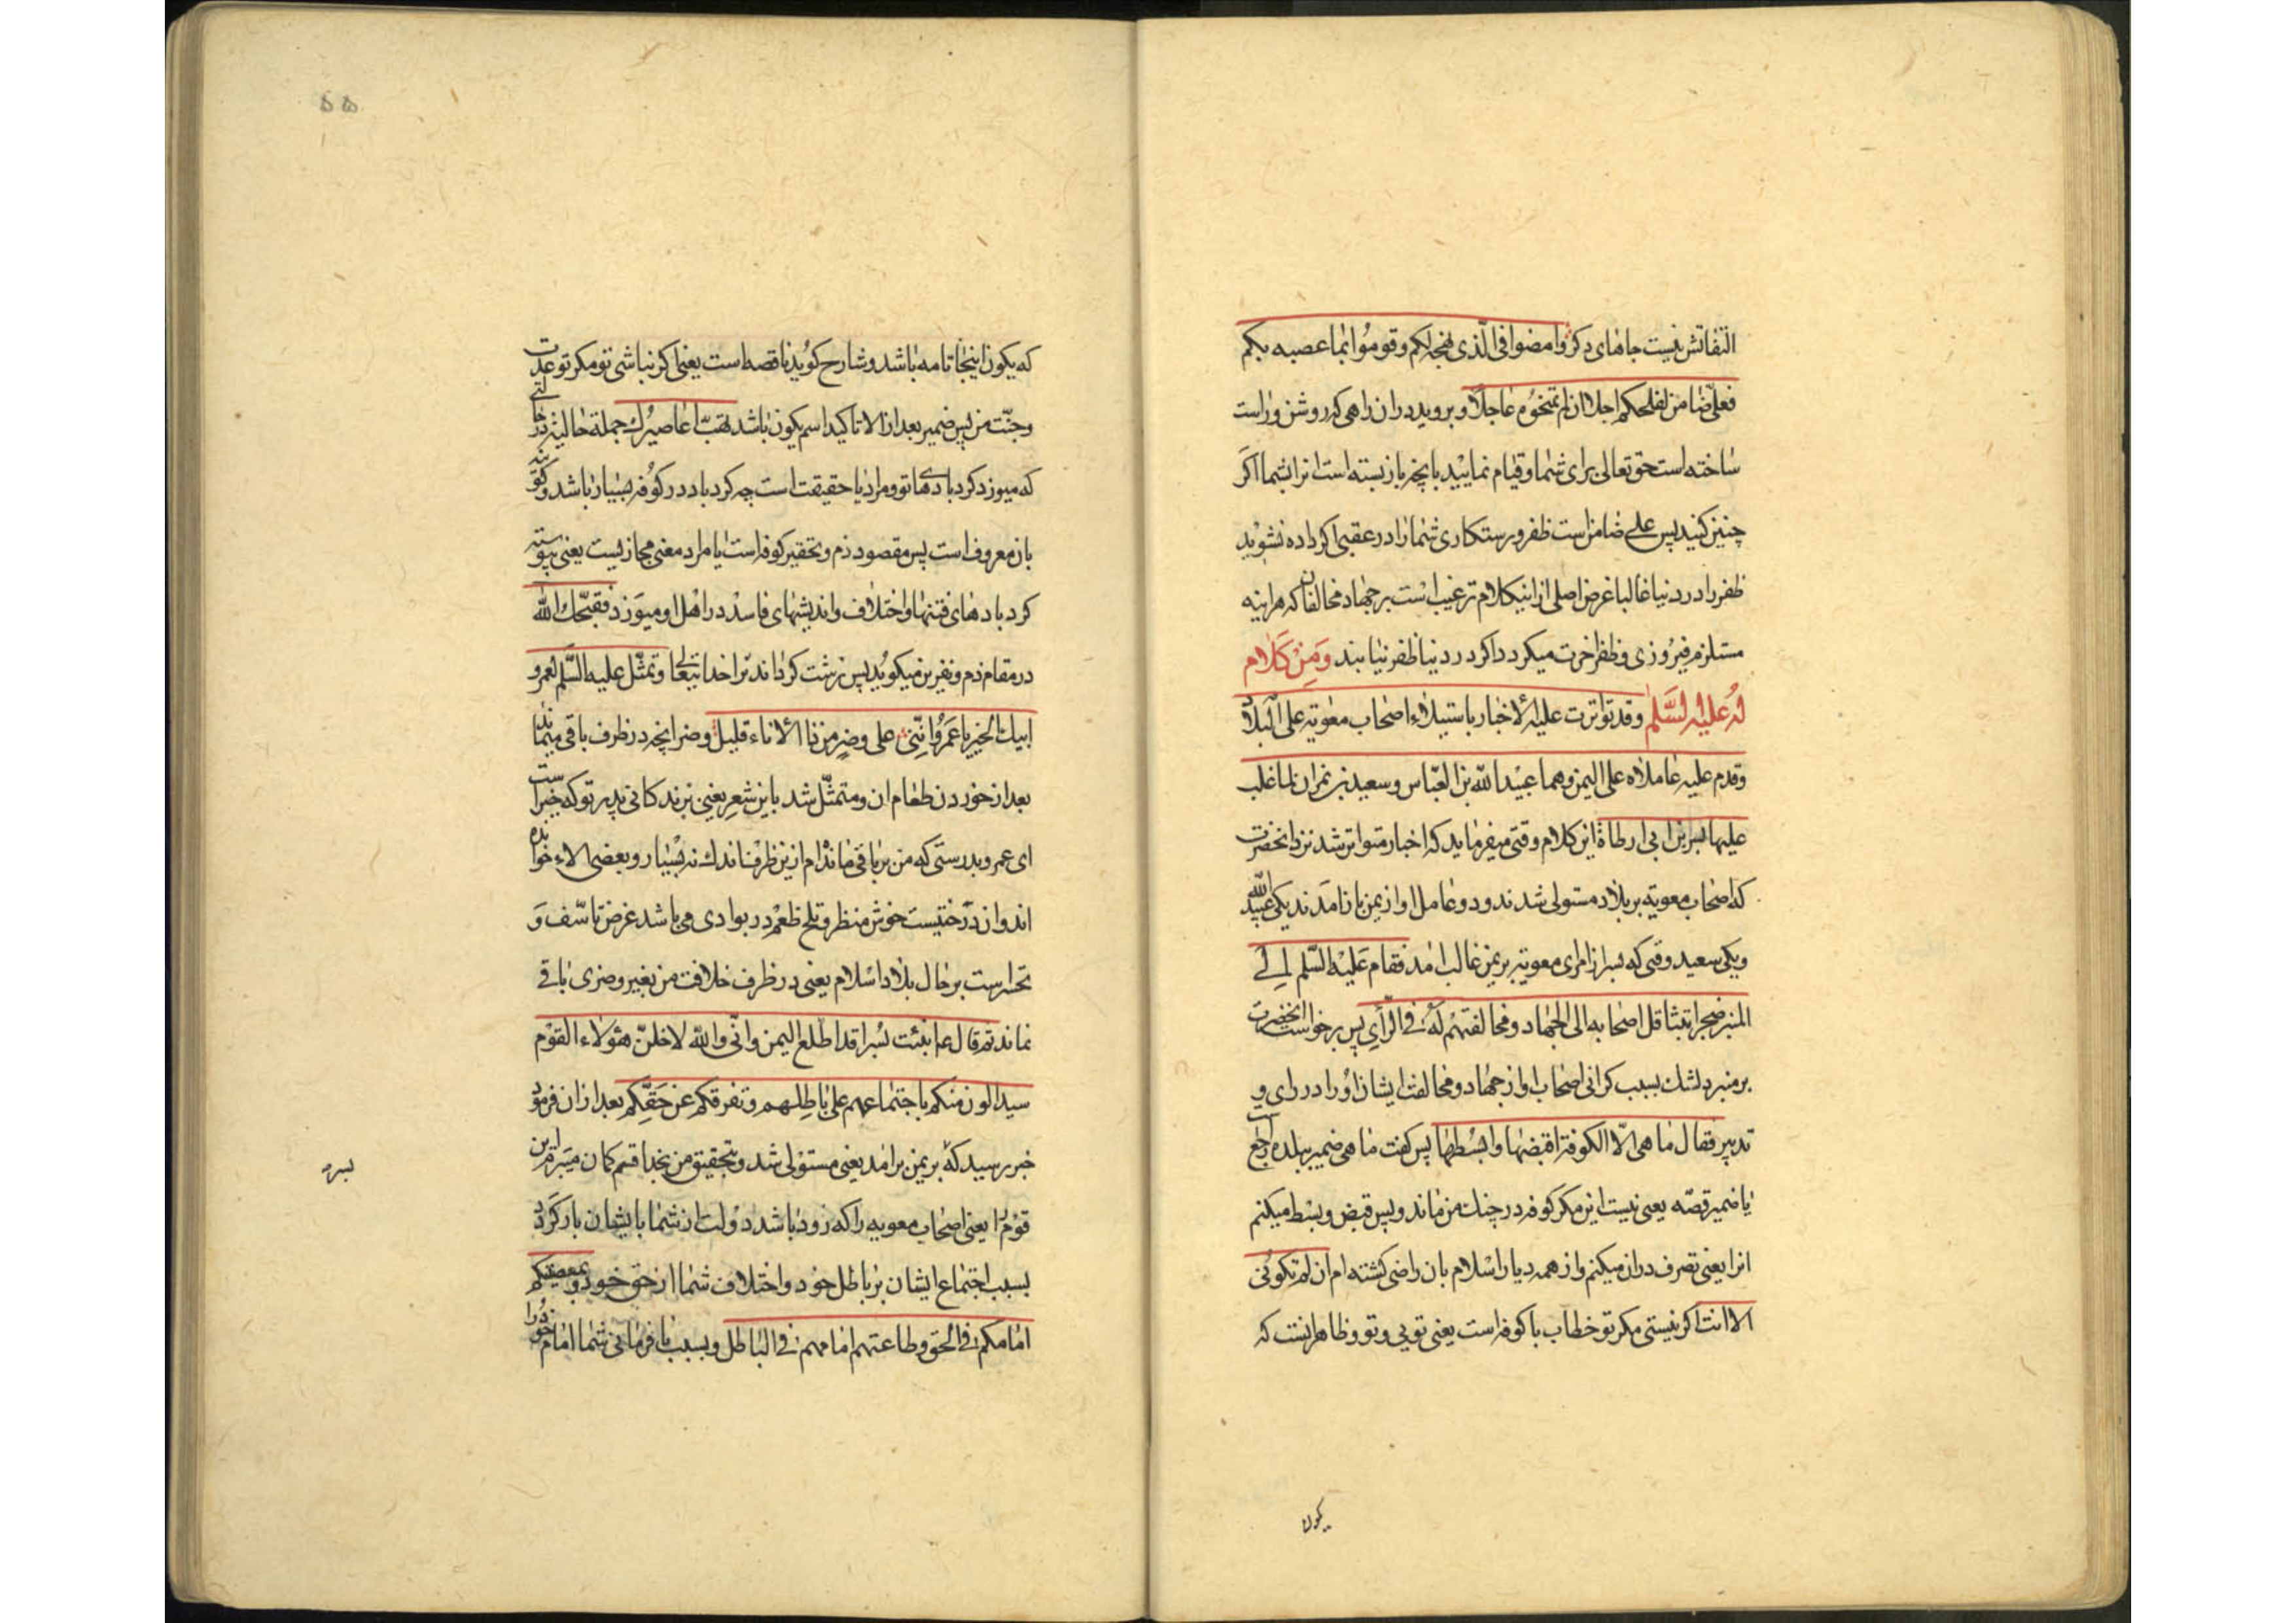 التفاتش نیست جاهای دکر وامضوا فی الّذی نهجه لکم وقوموا بما عصبه بکم
فعلیّ ضامن لفلجکم اجلا ان لم تمنحوه عاجلا و بروید در ان راهی که روشن و راست
ساخته است حق تعالی برای شما و قیام نمایید بانچه باز بسته است انرا بشما اکر
چنین کنید پس علی ضامن است ظفر و رستکاری شما را در عقبی اکر داده نشوید
ظفر را در دنیا غالبا غرض اصلی از اینکلام ترغیب است بر جهاد مخالفان که هراینه
مستلزم فیروزی و ظفر اخرت میکردد اکر در دنیا ظفر نیابند وَمِنْ کَلام
لهُ علیْهِ السَّلم وقد تواترت علیه الأخبار باستیلاء اصحاب معویة علی البلاد
وقدم علیه عاملاه علی الیمن وهما عبیدالله بن العبّاس وسعید بن نمران لما غلب
علیها بسر بن ابی ارطاة این کلام وقتی میفرماید که اخبار متواتر شد نزد انحضرت
که اصحاب معویه بر بلاد مستولی شدند و دو عامل او از یمن باز امدند یکی عبیدالله
و یکی سعید وقتی که بسر از امرای معویه بر یمن غالب امد فقام عَلیْه السّلم اِلی
المنبر ضجرا بتثاقل اصحابه الی الجهاد ومخالفتهم لهُ فی الرّأی پس برخواست انحضرت
بر منبر دلتنك بسبب کرانی اصحاب او از جهاد و مخالفت ایشان اورا در رای و
تدبیر فقال ما هی الّا الکوفة اقبضها وابسُطها پس کفت ما هی ضمیر ببلده راجع است
یا ضمیر قصّه یعنی نیست این مکر کوفه در چنك من ماند و پس قبض و بسط میکنم
انرا یعنی تصرف در ان میکنم و از همه دیار اسلام بان راضی کشته ام ان لم تکونی
الا انت اکر نیستی مکر تو خطاب با کوفه است یعنی تویی و تو و ظاهر انست که
یکون
۵۵
که یکون اینجا تامه باشد و شارح کوید ناقصه است یعنی اکر نباشی تو مکر تو عدت
وجنّت من پس ضمیر بعد از الا تاکید اسم یکون باشد تهبّ اعاصیرُك جملهٔ حالیه در حالتی
که میوزد کردبادهای تو و مراد یا حقیقت است چه کردباد در کوفه بسیار باشد و کوفه
بان معروف است پس مقصود ذم و تحقیر کوفه است یا مراد معنی مجازیست یعنی پیوسته
کردبادهای فتنها و اختلاف و اندیشهای فاسد در اهل او میوَزد فقبّحك الله
در مقام ذم و نفرین میکوید پس زشت کرداند ترا خدایتعالی وتمثّل علیه السَّلم لعمرو
ابیك الخیر یا عَمرُو انّنی علی وضرٍ من ذا الأناء قلیل وضر انچه در ظرف باقی میماند
بعد از خوردن طعام ان و متمثّل شد باین شعر یعنی بزندکانی پدر تو که خیر است
ای عمرو بدرستی که من بر باقی مانده ام ازین ظرف اندك نه بسیار و بعضی الاء خوانده
اند و ان درختیست خوش منظر و تلخ طعم در بوادی می باشد غرض تاسّف وَ
تحسّرست بر حال بلاد اسلام یعنی در ظرف خلافت من بغیر وضری باقی
نماند ثم قال ع انبئت بُسرا قد اطّلع الیمن وانّی والله لاظنّ هؤلاء القوم
سیدالون منکم باجتماعهم علی باطِلهم وتفرقکم عن حَقِّکم بعد از ان فرمود
خبر رسید که بر یمن برامد یعنی مستولی شد و بتحقیق من بخدا قسم کمان میبرم این
قوم را یعنی اصحاب معویه را که زود باشد دولت از شما بایشان باز کردد
بسبب اجتماع ایشان بر باطل خود و اختلاف شما از حق خود وبمعصیتکم
امامکم فی الحق وطاعتهم امامهم فی الباطل و بسبب نافرمانی شما امام خود را
بسره